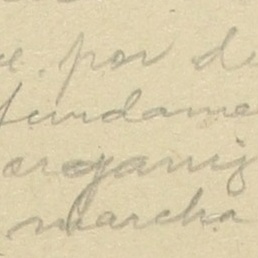 e. por de
fundame
organiz
marcha